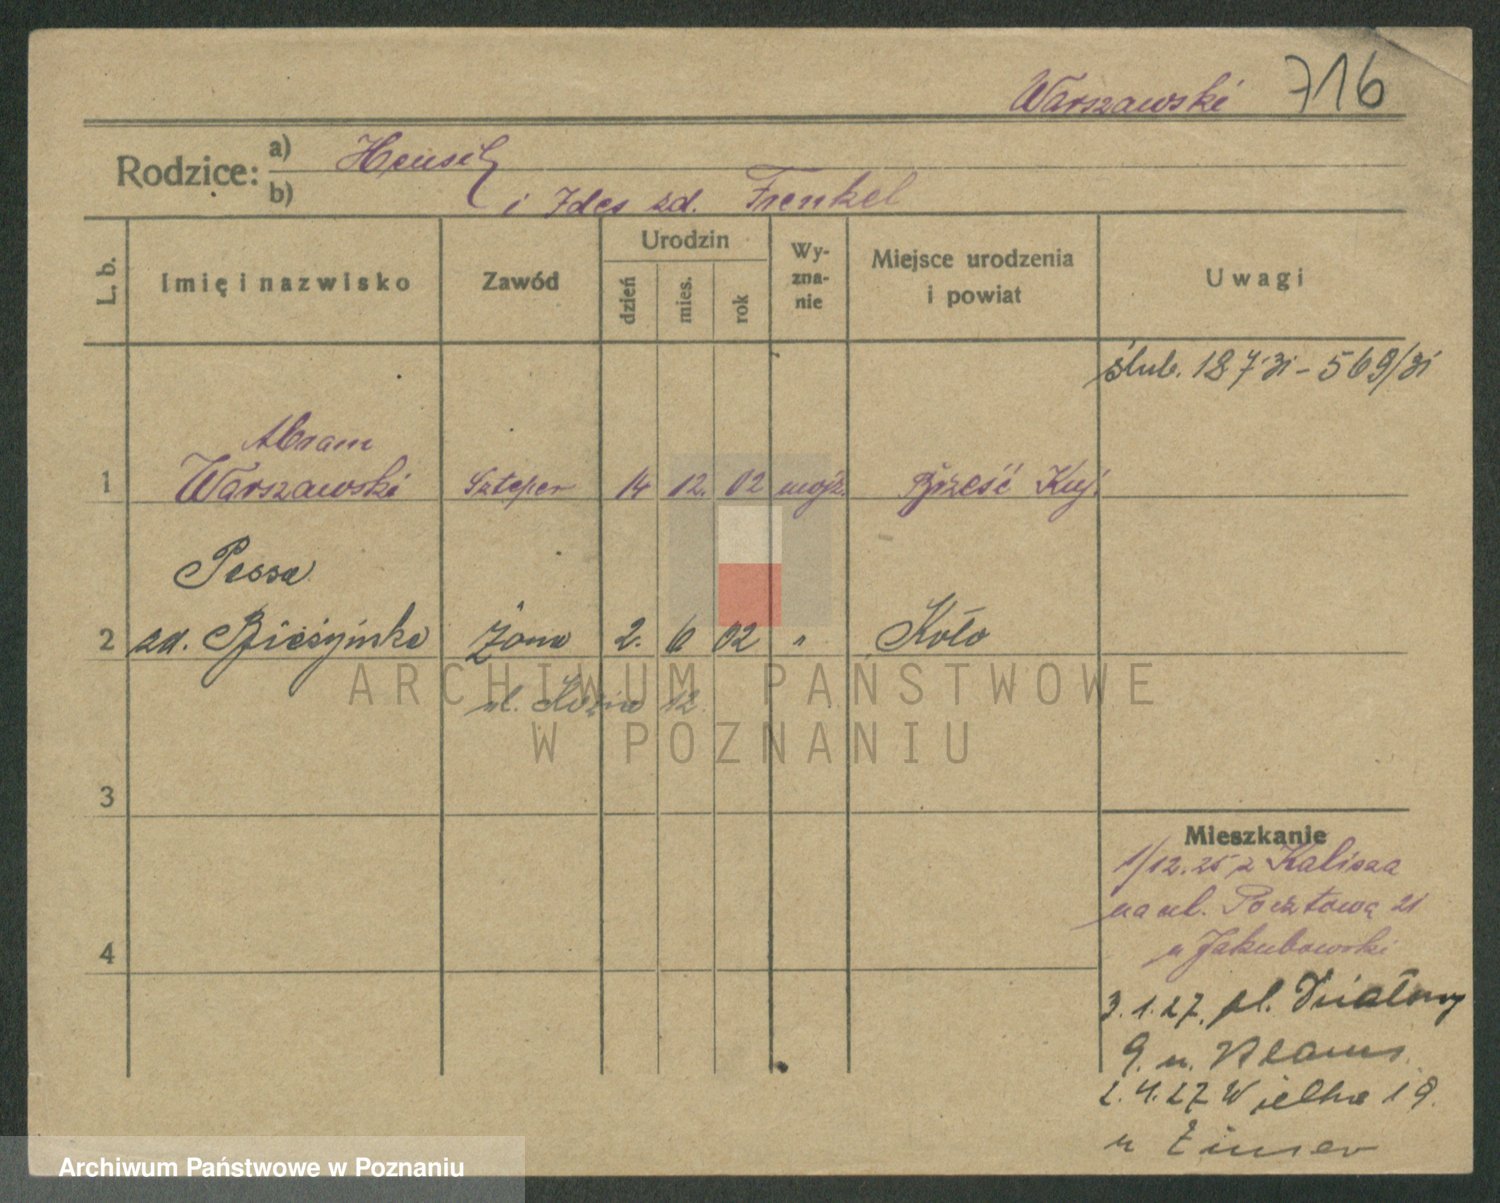 Warszawski 716
Rodzice: a) Hensil
b) i Ides zd. Frenkel
L. b. Imię i nazwisko Zawód Urodzin dzień mies. rok Wy-zna-nie Miejsce urodzenia i powiat Uwagi
ślub. 18 7 31 - 569/31
Abram
1 Warszawski Szteper 14 12. 02 mojż. Brześć Kuj.
Pessa
2 zd. Żona 2. 6 02 " Koło
ul. Kozia 12.
3
Mieszkanie
1/12.25 z Kalisza
na ul. Pocztową 21
u Jakubowski
4
3.1.27. pl. Działowy
9. u.
2.4.27 Wielka 19.
u
ARCHIWUM PAŃSTWOWE
W POZNANIU
Archiwum Państwowe w Poznaniu